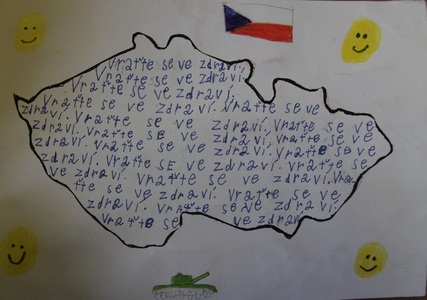 Vraťte se ve zdraví,
Vraťte se ve zdraví.
Vraťte se ve zdraví.
zdraví. Vraťte se ve zdraví. Vraťte se ve
zdraví. Vraťte se ve zdraví, Vraťte se ve
zdraví. Vraťte SE ve zdraví, Vraťte se ve
zdraví. Vraťte se ve zdraví. Vraťte se ve
zdraví. Vraťte SE ve zdraví. Vraťte se
ve zdraví. Vraťte se ve zdraví. Vra
ťte se ve zdraví. Vraťte se ve
zdraví. Vraťte se ve zdraví.
Vraťte se ve zdraví